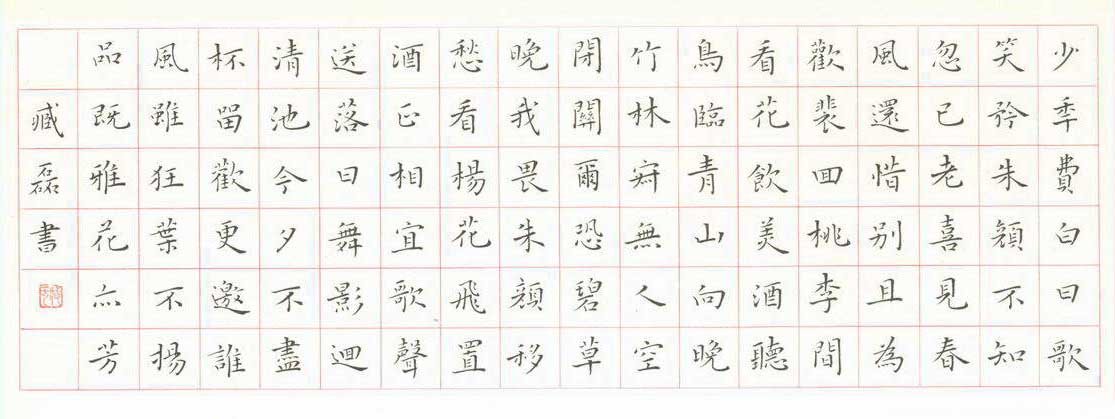 少秊費白日歌
笑矜朱顏不知
忽已老喜見春
風還惜別且為
歡裴回桃李間
看花飲美酒聽
鳥臨青山向晚
竹林寂無人空
閉關爾恐碧草
晚我畏朱顏移
愁看楊花飛置
酒正相宜歌聲
送落日舞影迴
清池今夕不盡
杯留歡更邀誰
風雖狂葉不揚
品既雅花亦芳
臧磊書